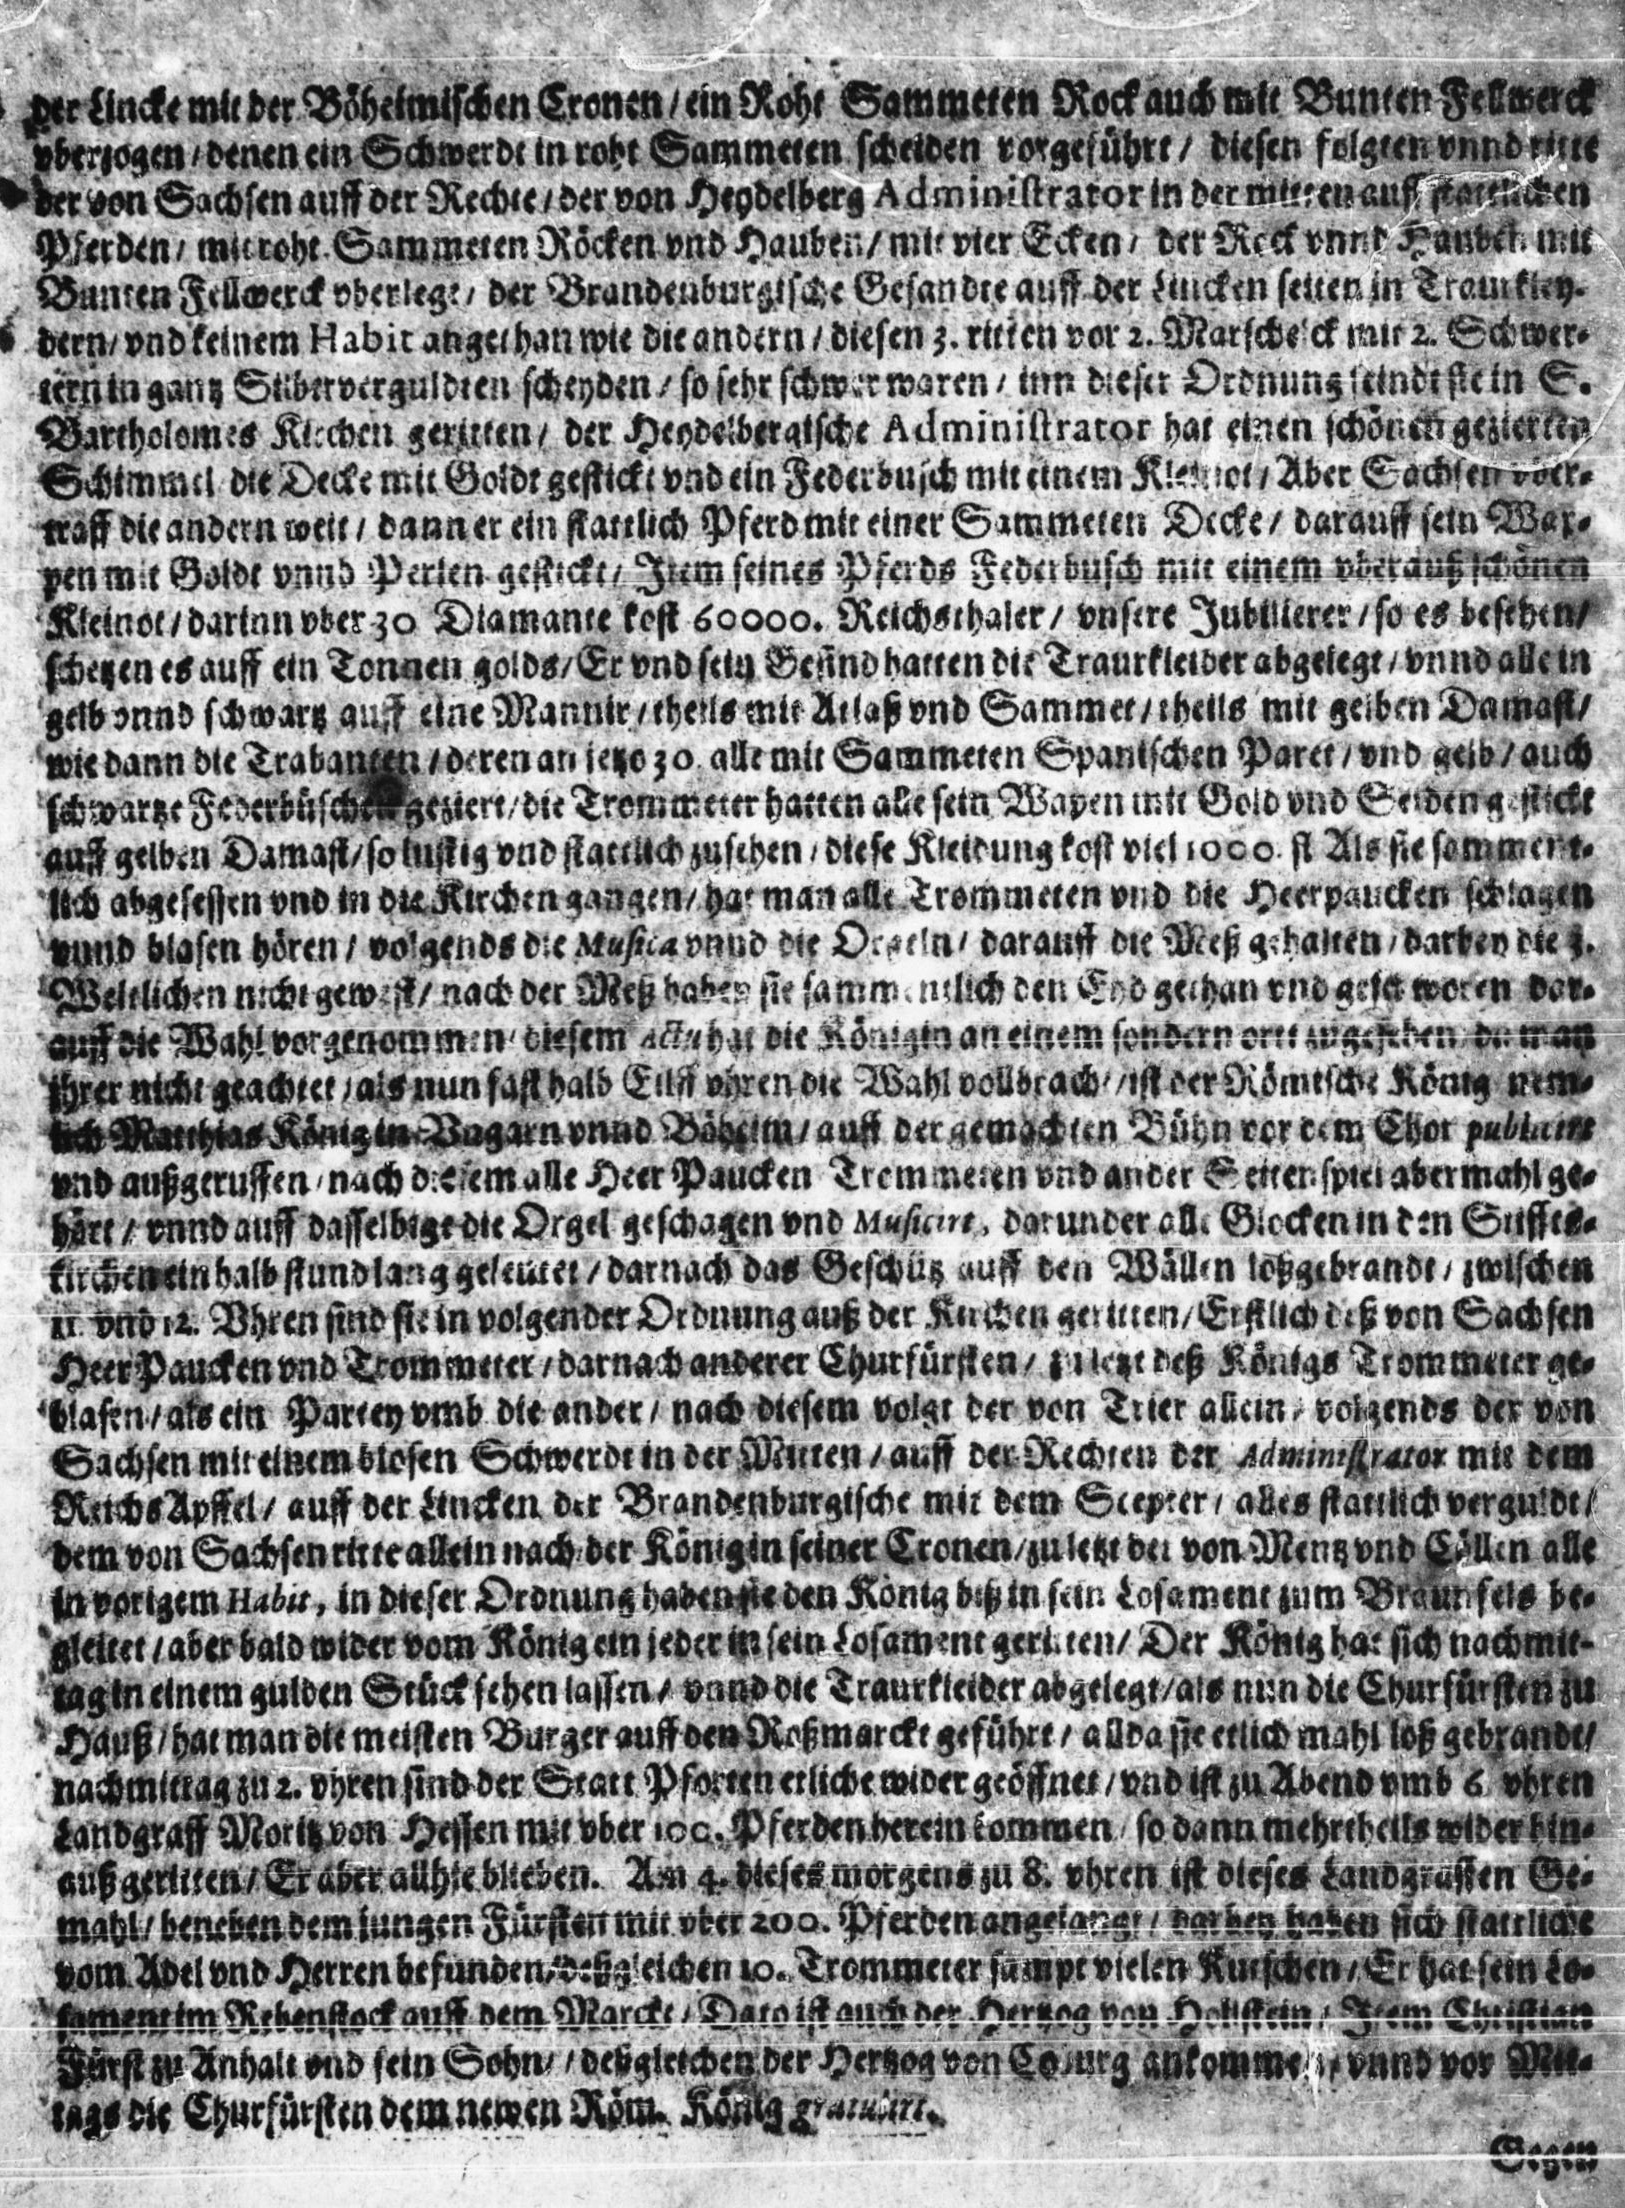 der Lincke mit der Böheimischen Cronen / ein Roht Sammeten Rock auch mit Bunten Fellwerck
vberzogen / denen ein Schwerdt in roht Sammeten scheiden vorgeführt / diesen folgten vnnd ritte
der von Sachsen auff der Rechte / der von Heydelberg Administrator in der mitten auff stattlichen
Pferden / mit roht Sammeten Röcken vnd Hauben / mit vier Ecken / der Rock vnnd Hauben mit
Bunten Fellwerck vberlegt / der Brandenburgische Gesandte auff der Lincken seiten in Traurkley-
dern / vnd keinem Habit angethan wie die andern / diesen 3. ritten vor 2. Marschelck mit 2. Schwer-
tern in gantz Silberverguldten scheyden / so sehr schwer waren / inn dieser Ordnung seindt sie in S.
Bartholomes Kirchen geritten / der Heydelbergische Administrator hat einen schönen gezierten
Schimmel die Decke mit Goldt gestickt vnd ein Federbusch mit einem Kleinot / Aber Sachsen vber-
traff die andern weit / dann er ein stattlich Pferd mit einer Sammeten Decke / darauff sein Wap-
pen mit Goldt vnnd Perlen gestickt / Item seines Pferds Federbusch mit einem vberauß schönen
Kleinot / darinn vber 30 Diamante kost 60000. Reichsthaler / vnsere Jubilierer / so es besehen /
schetzen es auff ein Tonnen golds / Er vnd sein Gesind hatten die Traurkleider abgelegt / vnnd alle in
gelb vnnd schwartz auff eine Mannir / theils mit Atlaß vnd Sammet / theils mit gelben Damast /
wie dann die Trabanten / deren an jetzo 30. alle mit Sammeten Spanischen Paret / vnd gelb / auch
schwartze Federbüschen geziert / die Trommeter hatten alle sein Wapen mit Gold vnd Seiden gestickt
auff gelben Damast / so lustig vnd stattlich zusehen / diese Kleidung kost viel 1000. fl Als sie somment-
lich abgesessen vnd in die Kirchen gangen / hat man alle Trommeten vnd die Heerpaucken schlagen
vnnd blasen hören / volgends die Musica vnnd die Orgeln / darauff die Meß gehalten / darbey die 3.
Weltlichen nicht gewest / nach der Meß haben sie sammentlich den Eyd gethan vnd woren dar-
auff die Wahl vorgenommen / diesem actu hat die Königin an einem sondern ort zugesehen da man
ihrer nicht geachtet / als nun fast halb Eilff vhren die Wahl vollbracht / ist der Römische König nem-
lich Matthias König in Vngarn vnnd Böheim / auff der gemachten Bühn vor dem Chor publicirt
vnd außgeruffen / nach diesem alle Heer Paucken Trommeten vnd ander Seitenspiel abermahl ge-
hört / vnnd auff dasselbige die Orgel geschagen vnd Musicirt, darunder alle Glocken in den Stiffts-
kirchen ein halb stund lang geleutet / darnach das Geschütz auff den Wällen loßgebrandt / zwischen
11 vnd 12. Vhren sind sie in volgender Ordnung auß der Kirchen geritten / Erstlich deß von Sachsen
Heer Paucken vnd Trommeter / darnach anderer Churfürsten / zu letzt deß Königs Trommeter ge-
blasen / als ein Partey vmb die ander / nach diesem volgt der von Trier allein / volgends der von
Sachsen mit einem blosen Schwerdt in der Mitten / auff der Rechten der Administrator mit dem
Reichs Apffel / auff der Lincken der Brandenburgische mit dem Scepter / alles stattlich verguldt /
dem von Sachsen ritte allein nach der König in seiner Cronen / zu letzt der von Mentz vnd Cöllen alle
in vorigem Habit, in dieser Ordnung haben sie den König biß in sein Losament zum Braunfels be-
gleitet / aber bald wider vom König ein jeder in sein Losament geritten / Der König hat sich nachmit-
tag in einem gulden Stück sehen lassen / vnnd die Traurkleider abgelegt / als nun die Churfürsten zu
Hauß / hat man die meisten Burger auff den Roßmarckt geführt / allda sie etlich mahl loß gebrandt /
nachmittag zu 2. vhren sind der Statt Pforten etliche wider geöffnet / vnd ist zu Abend vmb 6 vhren
Landgraff Moritz von Hessen mit vber 100. Pferden herein kommen / so dann mehrtheils wider hin-
auß geritten / Er aber allhie blieben. Am 4. dieses morgens zu 8. vhren ist dieses Landgraffen Ge-
mahl / beneben dem jungen Fürsten mit vber 200. Pferden angelangt / darbey haben sich stattliche
vom Adel vnd Herren befunden / deßgleichen 10. Trommeter sampt vielen Kutschen / Er hat sein Lo-
sament im Rebenstock auff dem Marckt / Dato ist auch der Hertzog von Hollstein / Item Christian
Fürst zu Anhalt vnd sein Sohn / deßgleichen der Hertzog von Coburg ankommen / vnnd vor Mit-
tags die Churfürsten dem newen Röm. König gratulirt.
Segen